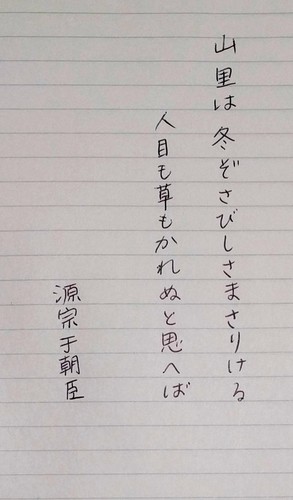 山里は冬ぞさびしさまさりける
人目も草もかれぬと思へば
源宗于朝臣